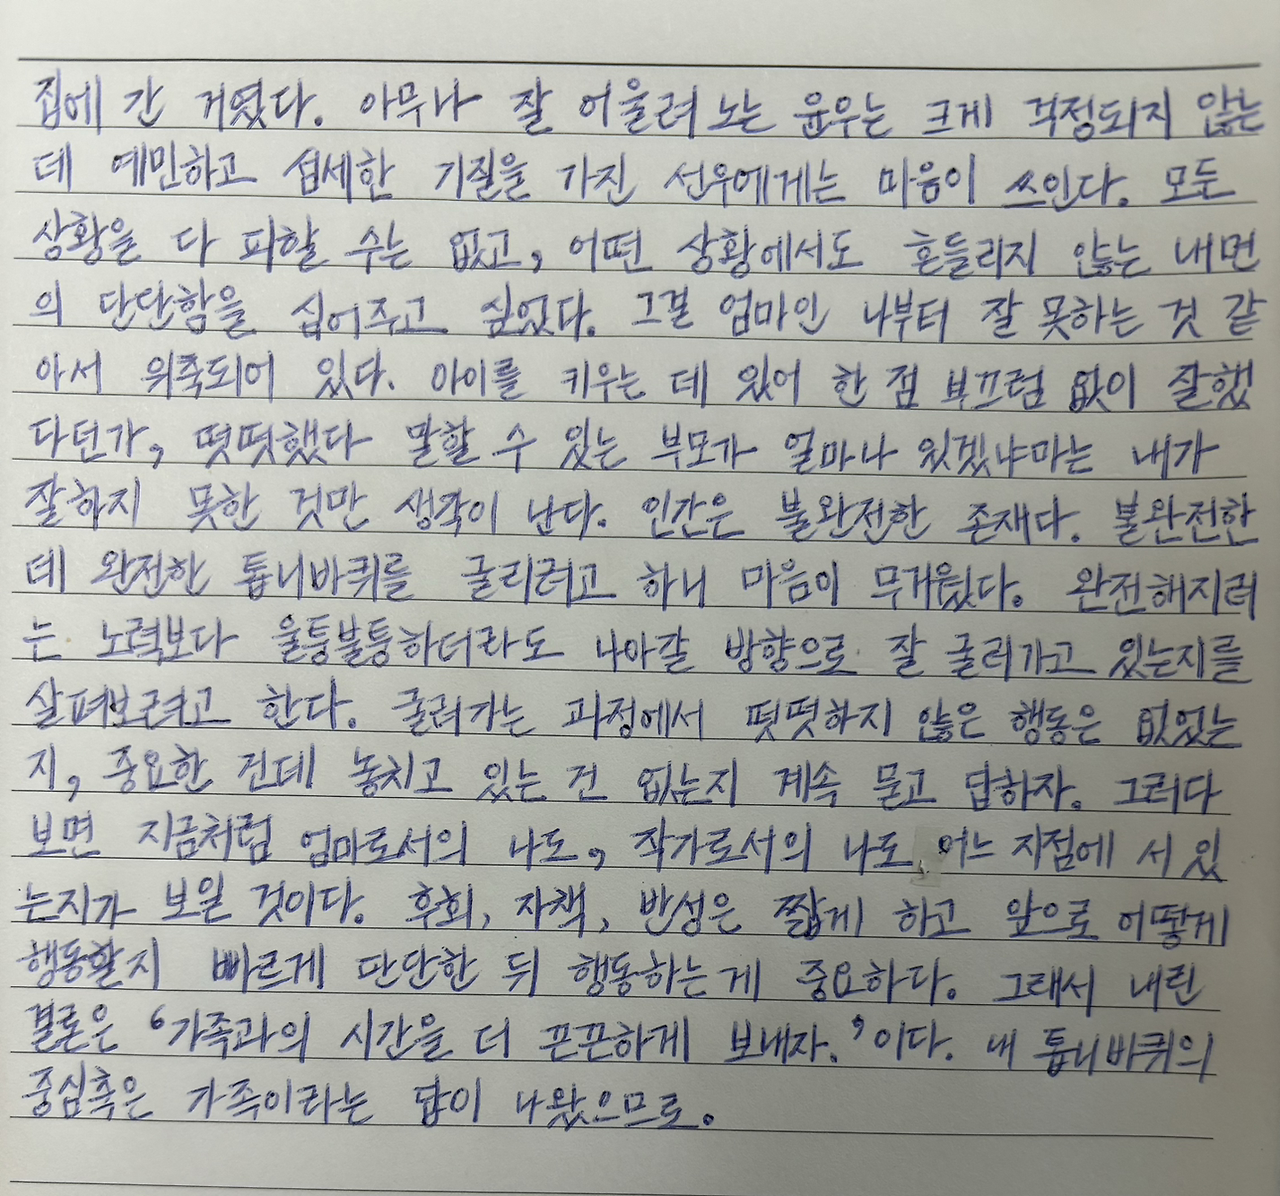 집에 간 거였다. 아무나 잘 어울려 노는 윤우는 크게 걱정되지 않는
데 예민하고 섬세한 기질을 가진 선우에게는 마음이 쓰인다. 모든
상황을 다 피할 수는 없고, 어떤 상황에서도 흔들리지 않는 내면
의 단단함을 심어주고 싶었다. 그걸 엄마인 나부터 잘 못하는 것 같
아서 위축되어 있다. 아이를 키우는 데 있어 한 점 부끄럼 없이 잘했
다던가, 떳떳했다 말할 수 있는 부모가 얼마나 있겠냐마는 내가
잘하지 못한 것만 생각이 난다. 인간은 불완전한 존재다. 불완전한
데 완전한 톱니바퀴를 굴리려고 하니 마음이 무거웠다. 완전해지려
는 노력보다 울퉁불퉁하더라도 나아갈 방향으로 잘 굴러가고 있는지를
살펴보려고 한다. 굴러가는 과정에서 떳떳하지 않은 행동은 없었는
지, 중요한 건데 놓치고 있는 건 없는지 계속 묻고 답하자. 그러다
보면 지금처럼 엄마로서의 나도, 작가로서의 나도 어느 지점에 서 있
는지가 보일 것이다. 후회, 자책, 반성은 짧게 하고 앞으로 어떻게
행동할지 빠르게 판단한 뒤 행동하는게 중요하다. 그래서 내린
결론은 ‘가족과의 시간을 더 끈끈하게 보내자.’이다. 내 톱니바퀴의
중심축은 가족이라는 답이 나왔으므로.